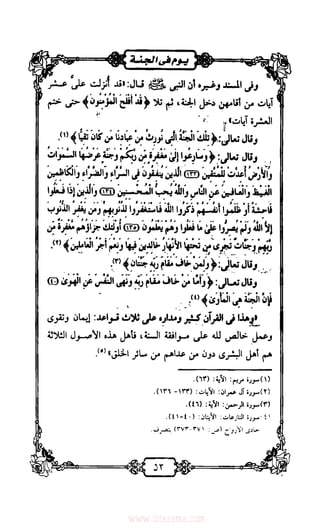 يوم في الجنة
وفى المسند وغيره أن النبى ﷺ قال: «قد أنزلت علىَّ عشر
آيات من أقامهن دخل الجنة، ثم تلا ﴿قَدْ أَفْلَحَ الْمُؤْمِنُونَ﴾ حتى ختم
العشرة آيات».
وقال تعالى: ﴿تِلْكَ الْجَنَّةُ الَّتِي نُورِثُ مِنْ عِبَادِنَا مَن كَانَ تَقِيًّا﴾(١).
وقال تعالى: ﴿وَسَارِعُوا إِلَىٰ مَغْفِرَةٍ مِّن رَّبِّكُمْ وَجَنَّةٍ عَرْضُهَا السَّمَوَاتُ
وَالأَرْضُ أُعِدَّتْ لِلْمُتَّقِينَ (١٣٣) الَّذِينَ يُنفِقُونَ فِي السَّرَّاءِ وَالضَّرَّاءِ وَالْكَاظِمِينَ
الْغَيْظَ وَالْعَافِينَ عَنِ النَّاسِ وَاللَّهُ يُحِبُّ الْمُحْسِنِينَ (١٣٤) وَالَّذِينَ إِذَا فَعَلُوا
فَاحِشَةً أَوْ ظَلَمُوا أَنفُسَهُمْ ذَكَرُوا اللَّهَ فَاسْتَغْفَرُوا لِذُنُوبِهِمْ وَمَن يَغْفِرُ الذُّنُوبَ
إِلاَّ اللَّهُ وَلَمْ يُصِرُّوا عَلَىٰ مَا فَعَلُوا وَهُمْ يَعْلَمُونَ (١٣٥) أُوْلَئِكَ جَزَاؤُهُم مَّغْفِرَةٌ مِّن
رَّبِّهِمْ وَجَنَّاتٌ تَجْرِي مِن تَحْتِهَا الأَنْهَارُ خَالِدِينَ فِيهَا وَنِعْمَ أَجْرُ الْعَامِلِينَ﴾(٢).
وقال تعالى: ﴿وَلِمَنْ خَافَ مَقَامَ رَبِّهِ جَنَّتَانِ﴾(٣).
وقال تعالى: ﴿وَأَمَّا مَنْ خَافَ مَقَامَ رَبِّهِ وَنَهَى النَّفْسَ عَنِ الْهَوَىٰ (٤٠)
فَإِنَّ الْجَنَّةَ هِيَ الْمَأْوَىٰ﴾(٤).
«وهذا فى القرآن كثير ومداره على ثلاث قواعد: إيمان وتقوى
وعمل خالص لله على موافقة السنة، فأهل هذه الأصول الثلاثة
هم أهل البشرى من دون من عداهم من سائر الخلق»(٥).
(١) سورة مريم: الآية: (٦٣).
(٢) سورة آل عمران: الآيات: (١٣٣-١٣٦).
(٣) سورة الرحمن: الآية: (٤٦).
(٤) سورة النازعات: الآيتان: (٤٠-٤١).
حادى الأرواح (ص: ٣٧١-٣٧٣) بتصرف.
٥٢